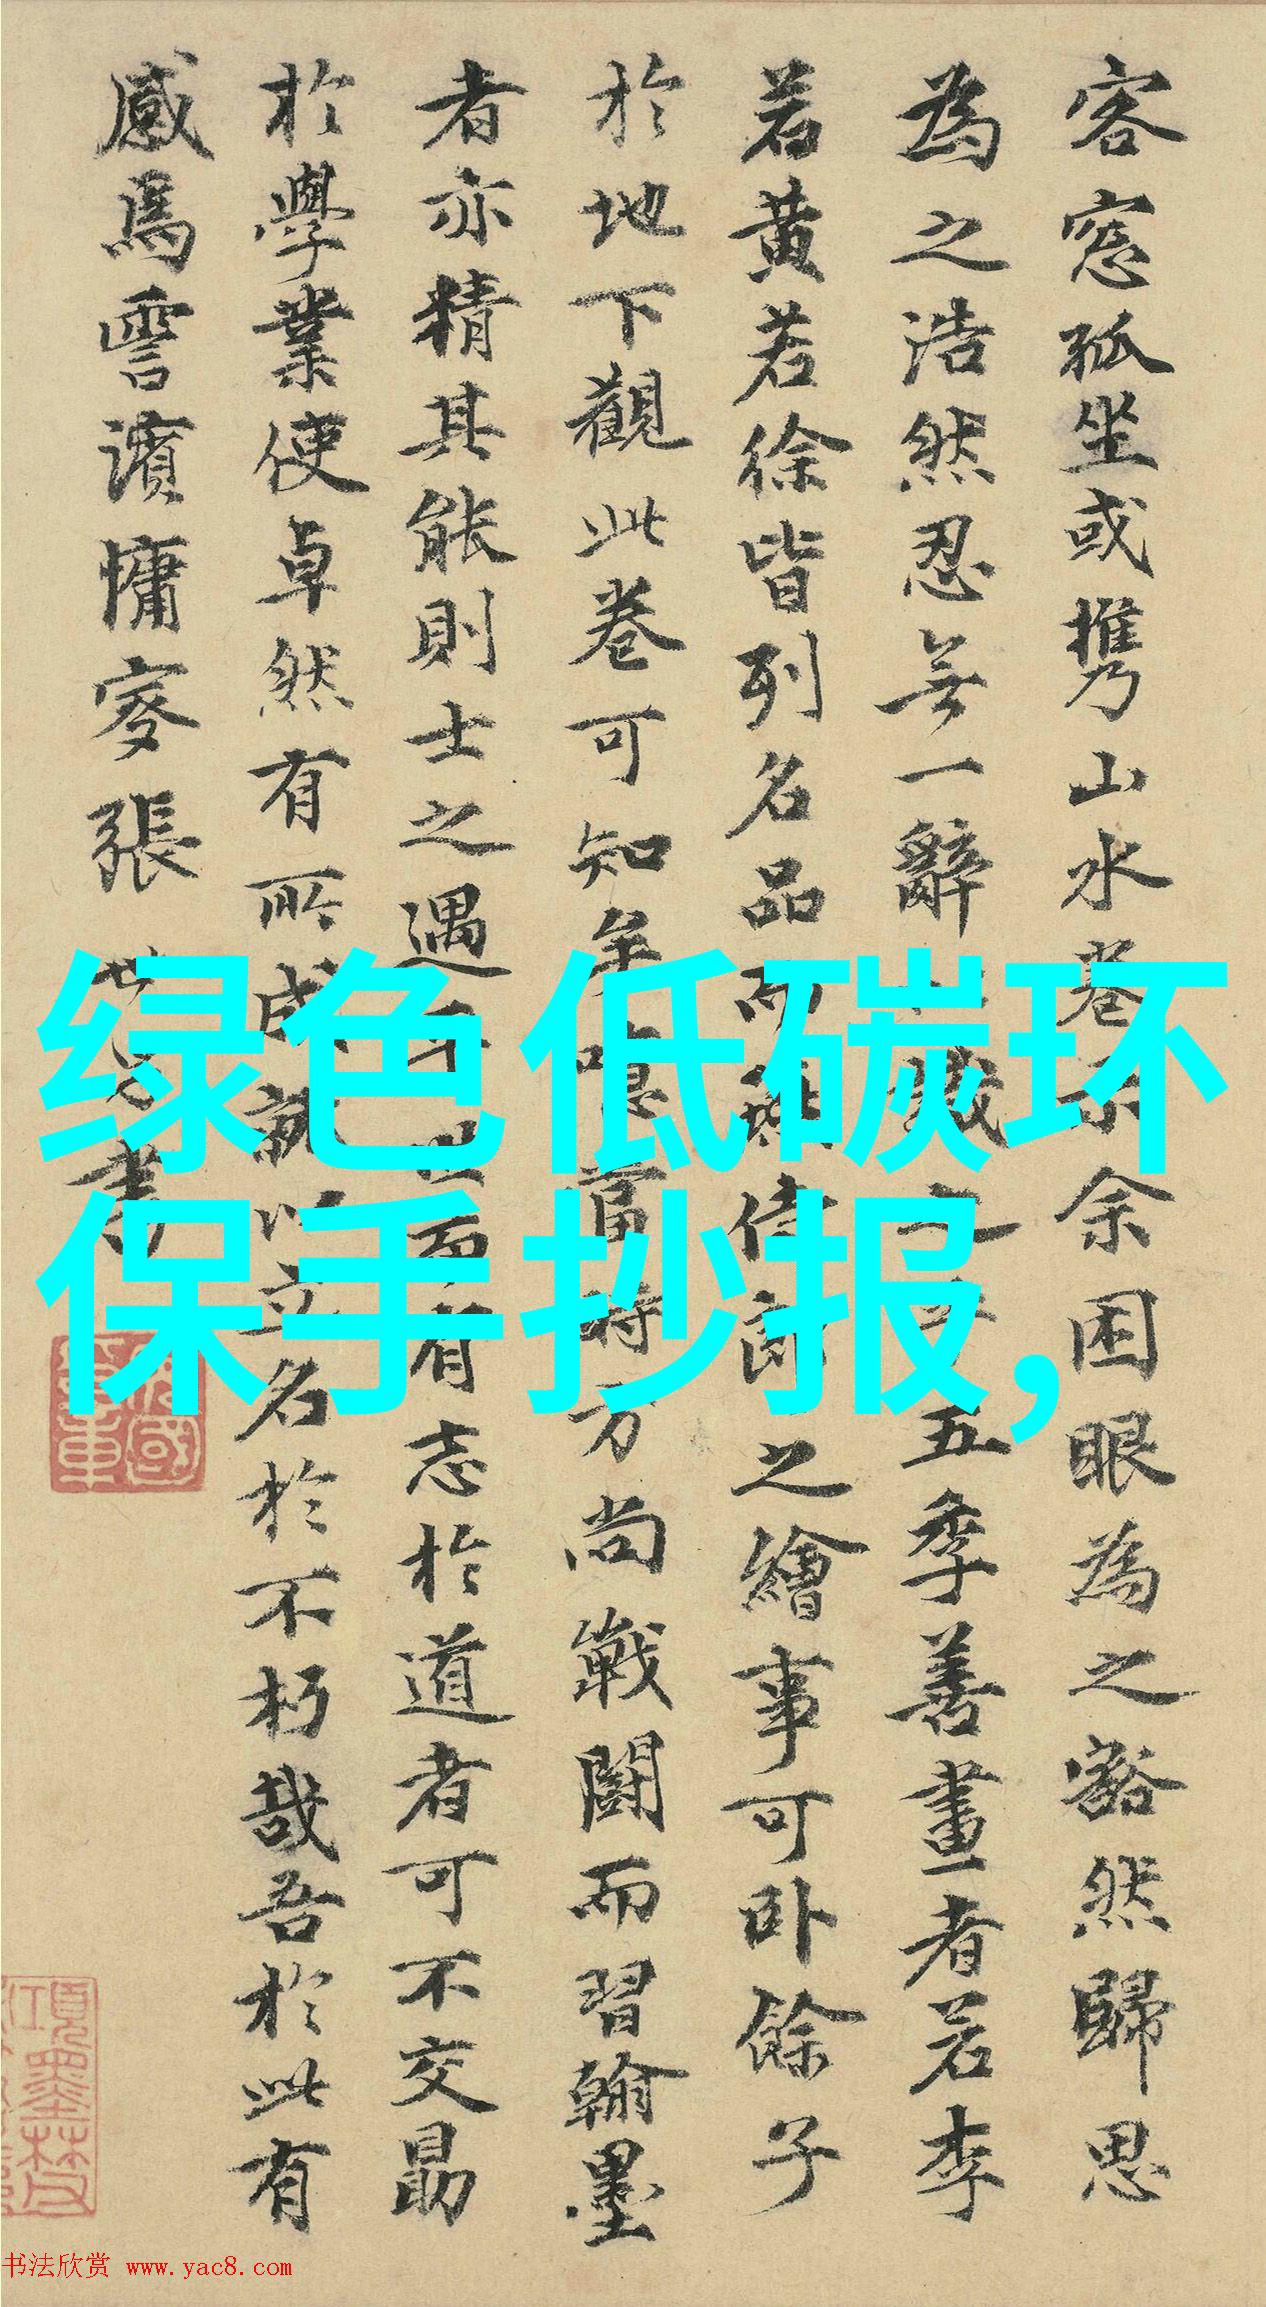 客窓孤坐或携山水卷示余困眼為之豁然歸思
為之浩然忍無一辭五季善畫者若李
若黄若徐皆列名品而之繪事可卧餘子
於地下觀此卷可知當時方尚戰鬪而習翰墨
者亦精其能則士之遇有志於道者可不交勗
於學業使卓然有所成就以立名於不朽哉吾於此有
感焉雪濱慵叟張世昌書
绿色低碳环
保手抄报,
书法欣赏 www.yac8.com